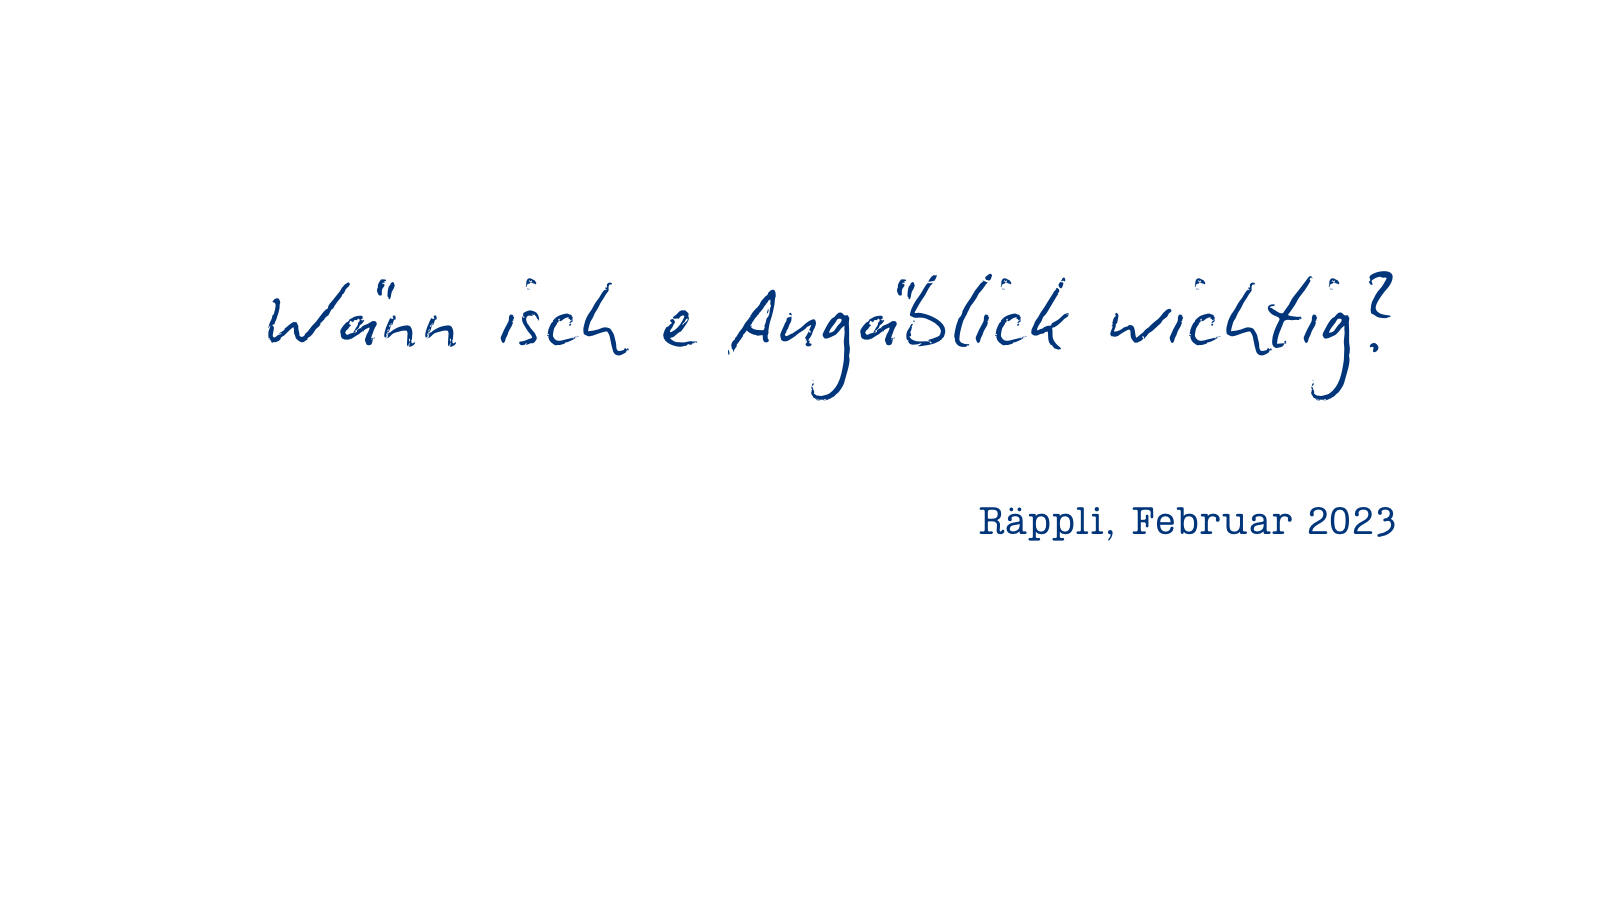 Wänn isch e Augäblick wichtig?
Räppli, Februar 2023